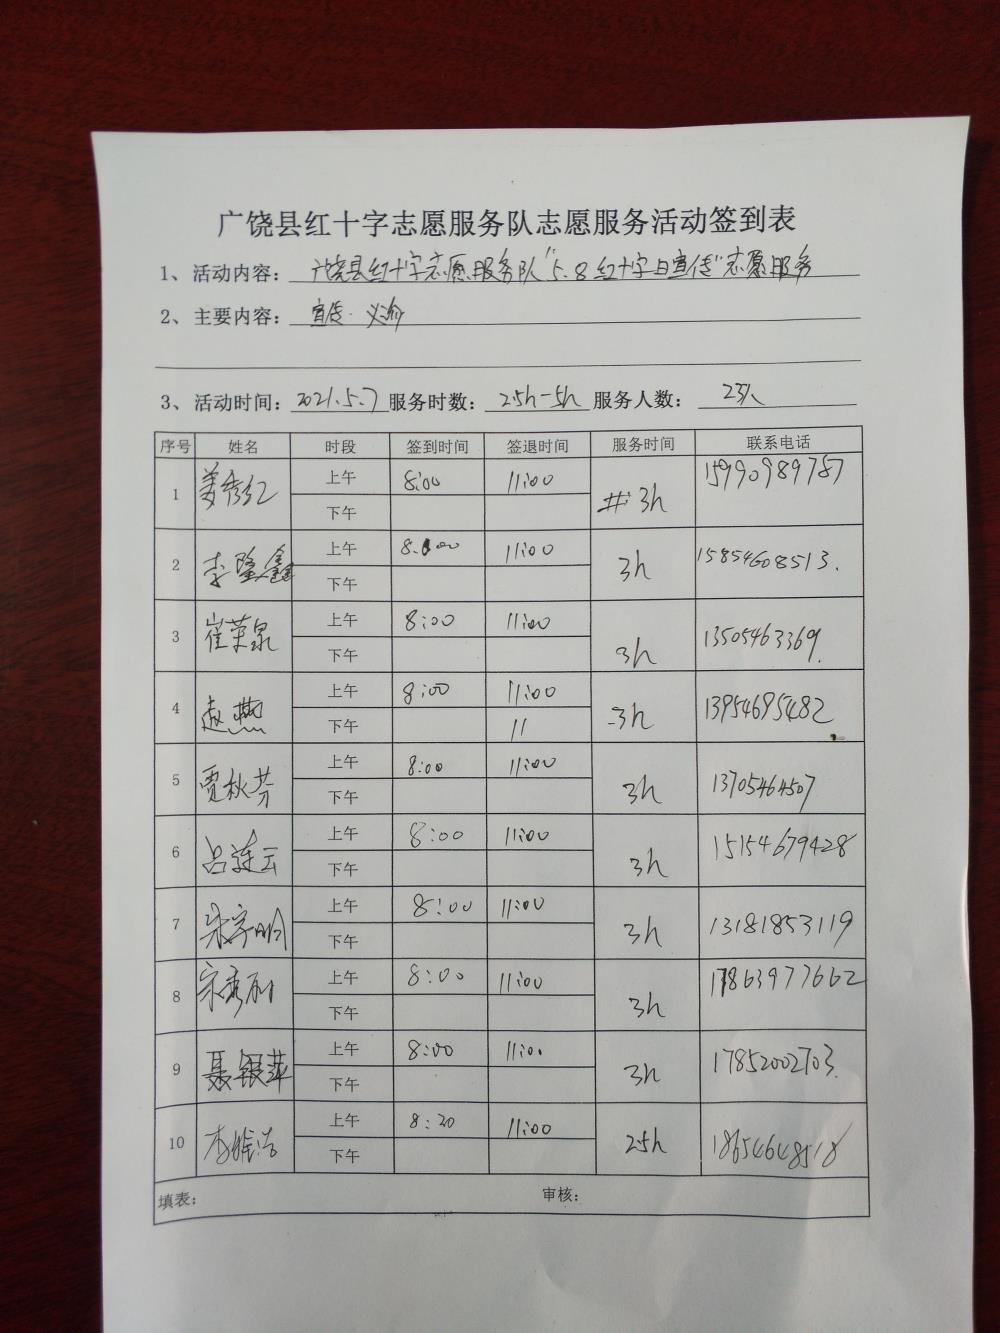 广饶县红十字志愿服务队志愿服务活动签到表
1、活动内容：广饶县红十字志愿服务队“5.8红十字日宣传”志愿服务
2、主要内容：宣传.义诊
3、活动时间：2021.5.7 服务时数：2.5h-5h 服务人数：23人
序号 姓名 时段 签到时间 签退时间 服务时间 联系电话
1 姜秀红 上午 8:00 11:00 3h 15990989787
下午
2 李隆鑫 上午 8:00 11:00 3h 15854608513.
下午
3 崔荣泉 上午 8:00 11:00 3h 13505463369.
下午
4 赵燕 上午 8:00 11:00 3h 13954695482
下午 11
5 贾秋芬 上午 8:00 11:00 3h 13705464507
下午
6 吕莲云 上午 8:00 11:00 3h 15154679428
下午
7 宋宇明 上午 8:00 11:00 3h 13181853119
下午
8 宋秀利 上午 8:00 11:00 3h 17863977662
下午
9 聂银萍 上午 8:00 11:00 3h 17852002703.
下午
10 李 上午 8:20 11:00 2.5h 18654648518
下午
填表： 审核：